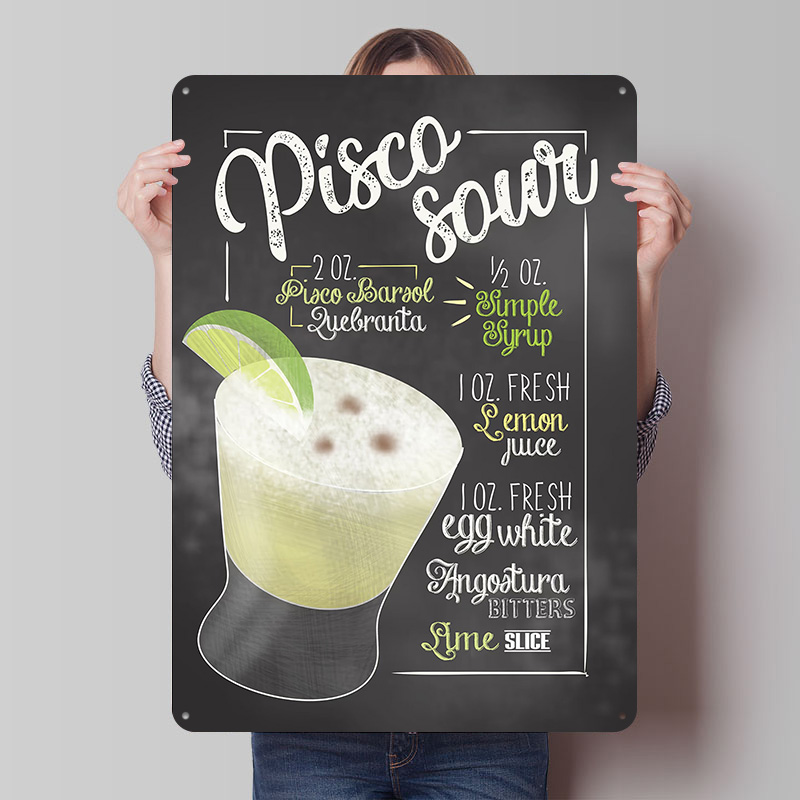 Pisco
sour
2 OZ.
Pisco Barsol
Quebranta
½ OZ.
Simple
Syrup
1 OZ. FRESH
Lemon
juice
1 OZ. FRESH
egg white
Angostura
BITTERS
Lime SLICE